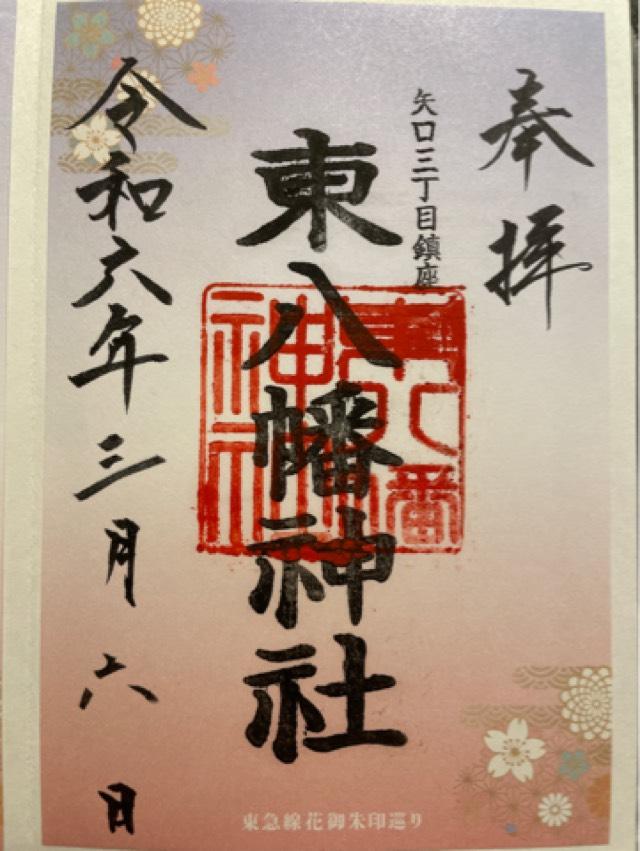 奉拝
矢口三丁目鎮座
東八幡神社
東八幡
神社
令和六年三月六日
東急線花御朱印巡り